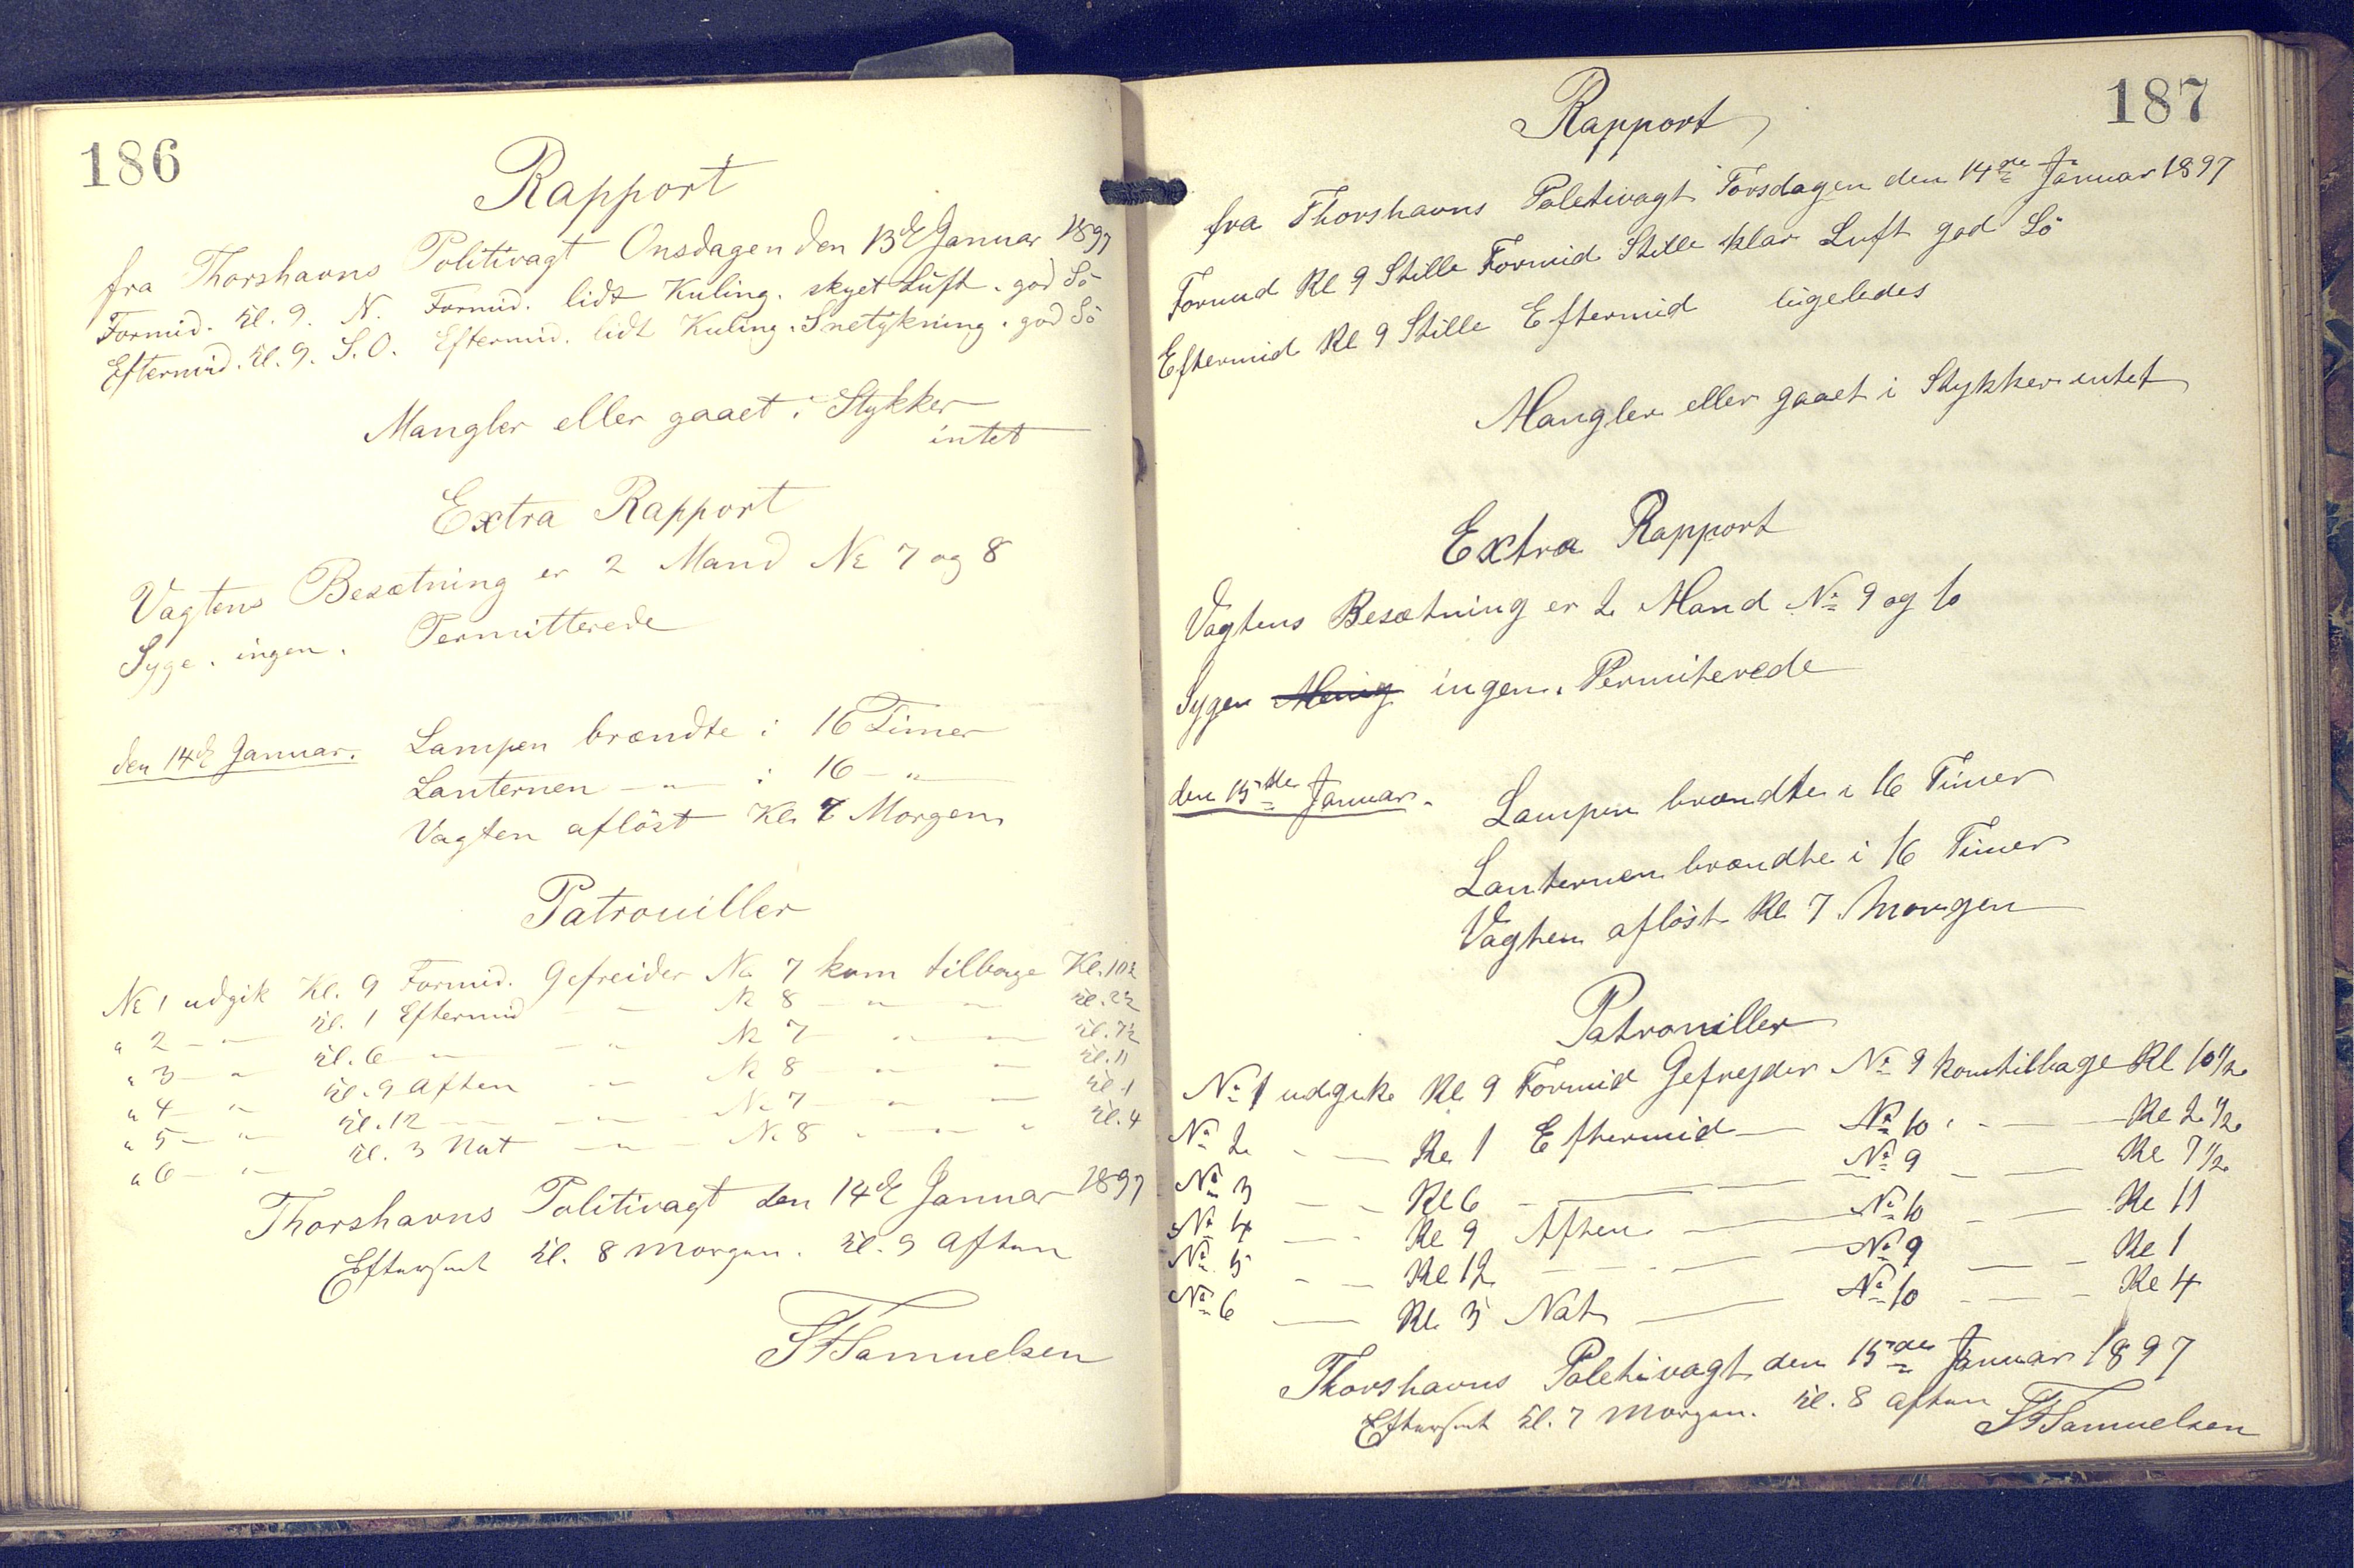 186
Rapport
fra Thorshavns Politivagt Onsdagen den 13de Januar 1897
Formid. Kl. 9. N. Formid. lidt Kuling. skyet Luft. god Sö
Eftermid. Kl. 9. S.O. Eftermid. lidt Kuling. Snetykning. god Sö
Mangler eller gaaet i Stykker
intet
Extra Rapport
Vagtens Besætning er 2 Mand No 7 og 8
Syge. ingen. Permitterede
den 14de Januar. Lampen brændte i 16 Timer
Lanternen — " — i 16 — " —
Vagten aflöst Kl. 7 Morgen
Patrouiller
No 1 udgik Kl. 9 Formid. Gefreider No 7 kom tilbage Kl. 10½
" 2 — " — Kl. 1 Eftermid — — No 8 — " — Kl. 2½
" 3 — " Kl. 6 — " — — " No 7 — " — Kl. 7½
" 4 — " Kl. 9 Aften — " — No 8 " — Kl. 11
" 5 — " Kl. 12 — — " — No 7 — " — Kl. 1
" 6 — " Kl. 3 Nat — " — No 8 " — " Kl. 4
Thorshavns Politivagt den 14de Januar 1897
Efterseet Kl. 8 Morgen. Kl. 9 Aften
Samuelsen
187
Rapport
fra Thorshavns Poletivagt Torsdagen den 14de Januar 1897
Formid Kl 9 Stille Formid Stille klar Luft god Sö
Eftermid Kl 9 Stille Eftermid ligeledes
Mangler eller gaaet i Stykker intet
Extra Rapport
Vagtens Besætning er 2 Mand No 9 og 10
Sygen ingen. Permiterede
den 15de Januar. Lampen brændte i 16 Timer
Lanternen brændte i 16 Timer
Vagten aflöst Kl 7 Morgen
Patrouiller
No 1 udgik Kl 9 Formid Gefrejder No 9 kom tilbage Kl 10 1/2
No 2 - — Kl 1 Eftermid — No 10 - — Kl 2 1/2
No 3 — - Kl 6 - — No 9 - — Kl 7 1/2
No 4 — - Kl 9 Aften — No 10 - — Kl 11
No 5 - — Kl 12 — - — No 9 — - Kl 1
No 6 — Kl 3 Nat — No 10 - — - Kl 4
Thorshavns Poletivagt den 15de Januar 1897
Efterseet Kl. 7 Morgen. Kl. 8 Aften
Samuelsen